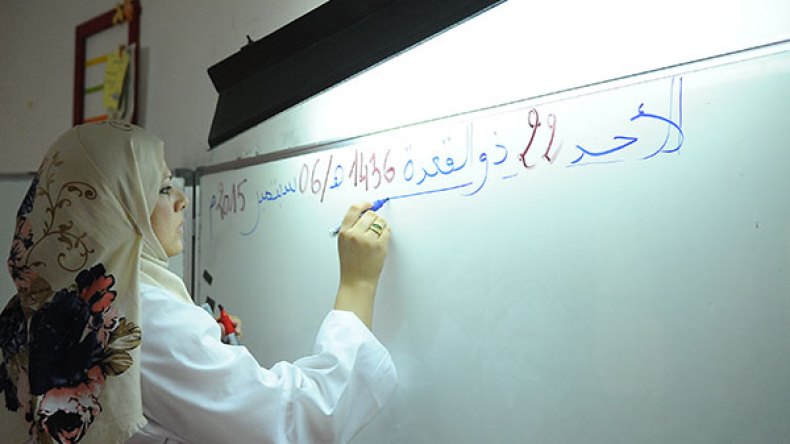 الأحد 22 ذو القعدة 1436 هـ/06 سبتمبر 2015م